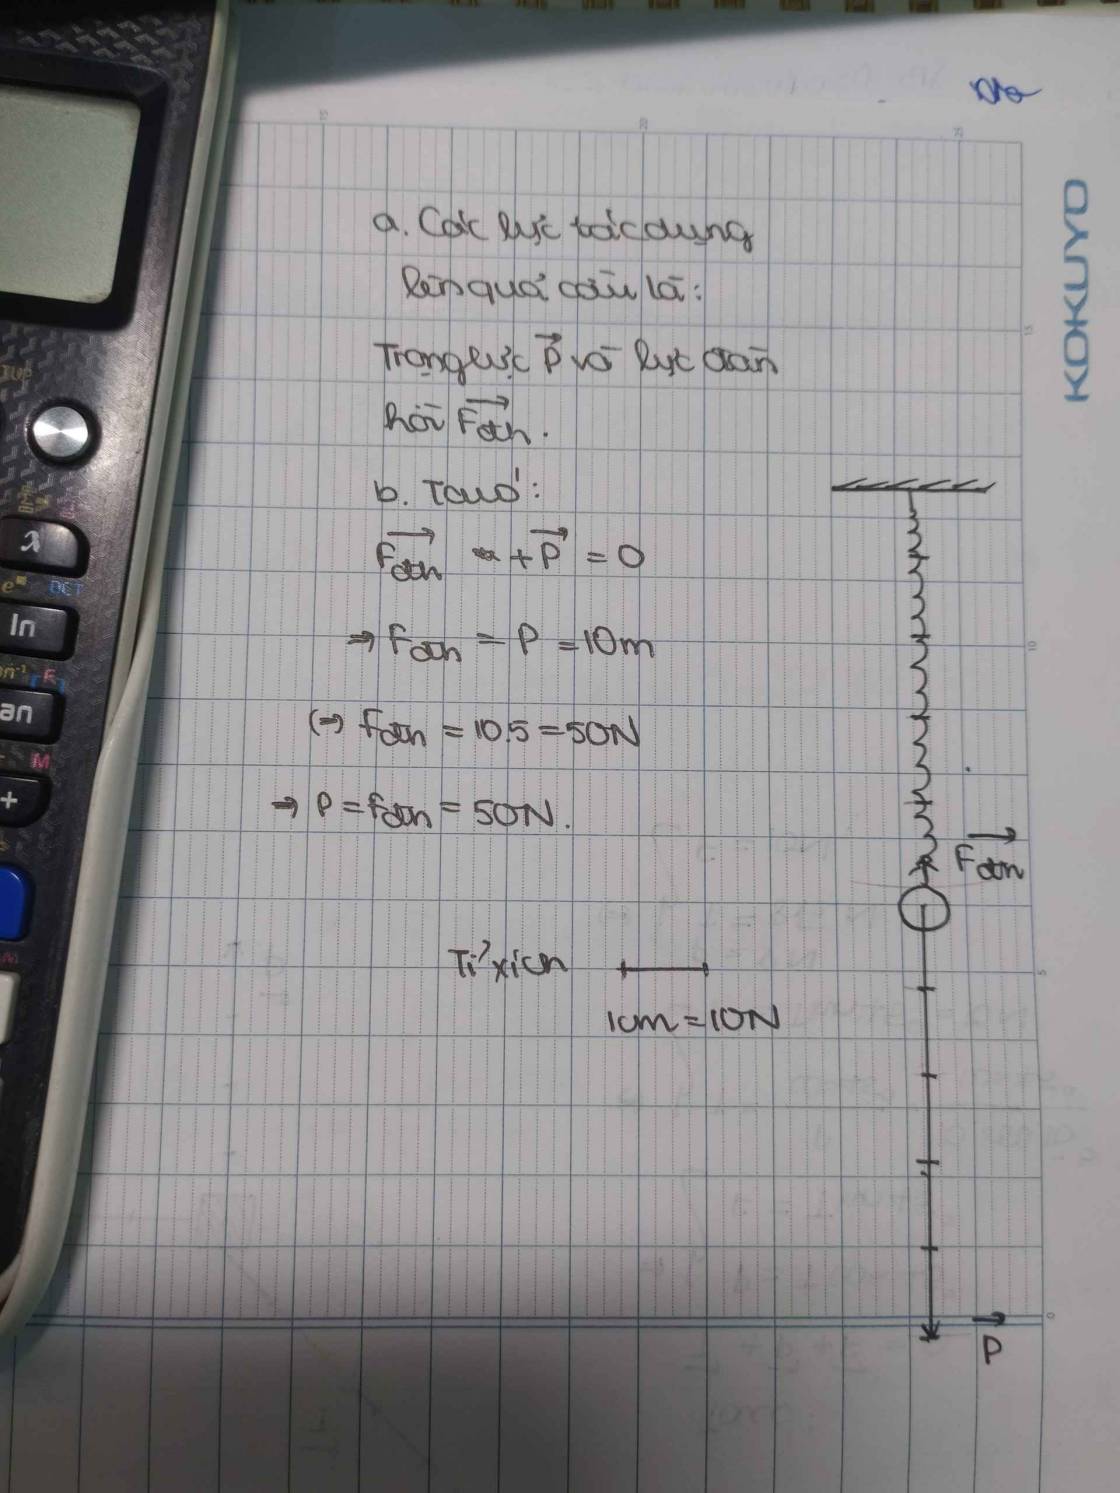 KOKUYO
a. Các lực tác dụng
lên quả cầu là:
Trọng lực P và lực đàn
hồi Fđh.
b. Ta có:
Fđh + P = 0
⇒ Fđh = P = 10m
(⇒) Fđh = 10.5 = 50N
⇒ P = Fđh = 50N.
Fđh
Tỉ xích
1cm = 10N
P
λ
e
DET
ln
an
M
+
20
15
10
5
0